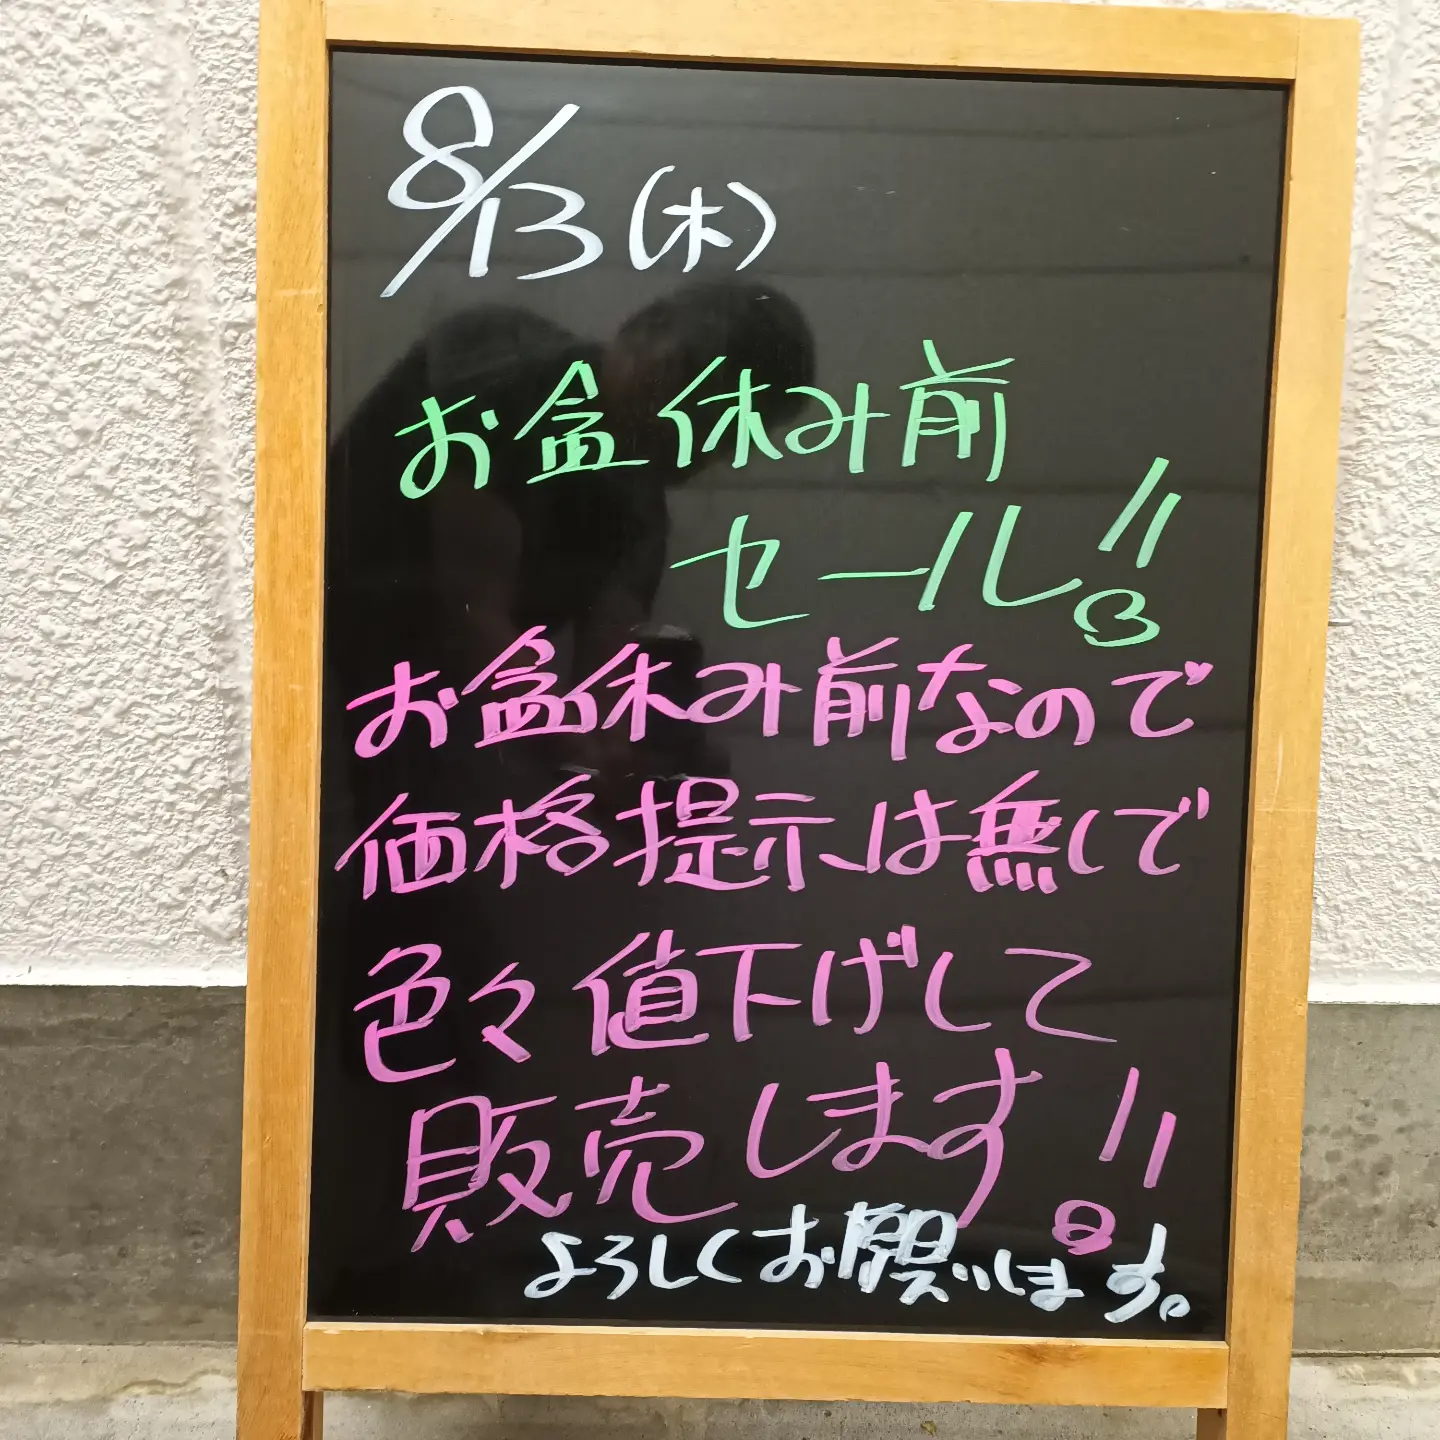 8/13(木)
お盆休み前
セール!!
お盆休み前なので
価格提示は無しで
色々値下げして
販売します!!
よろしくお願いします。